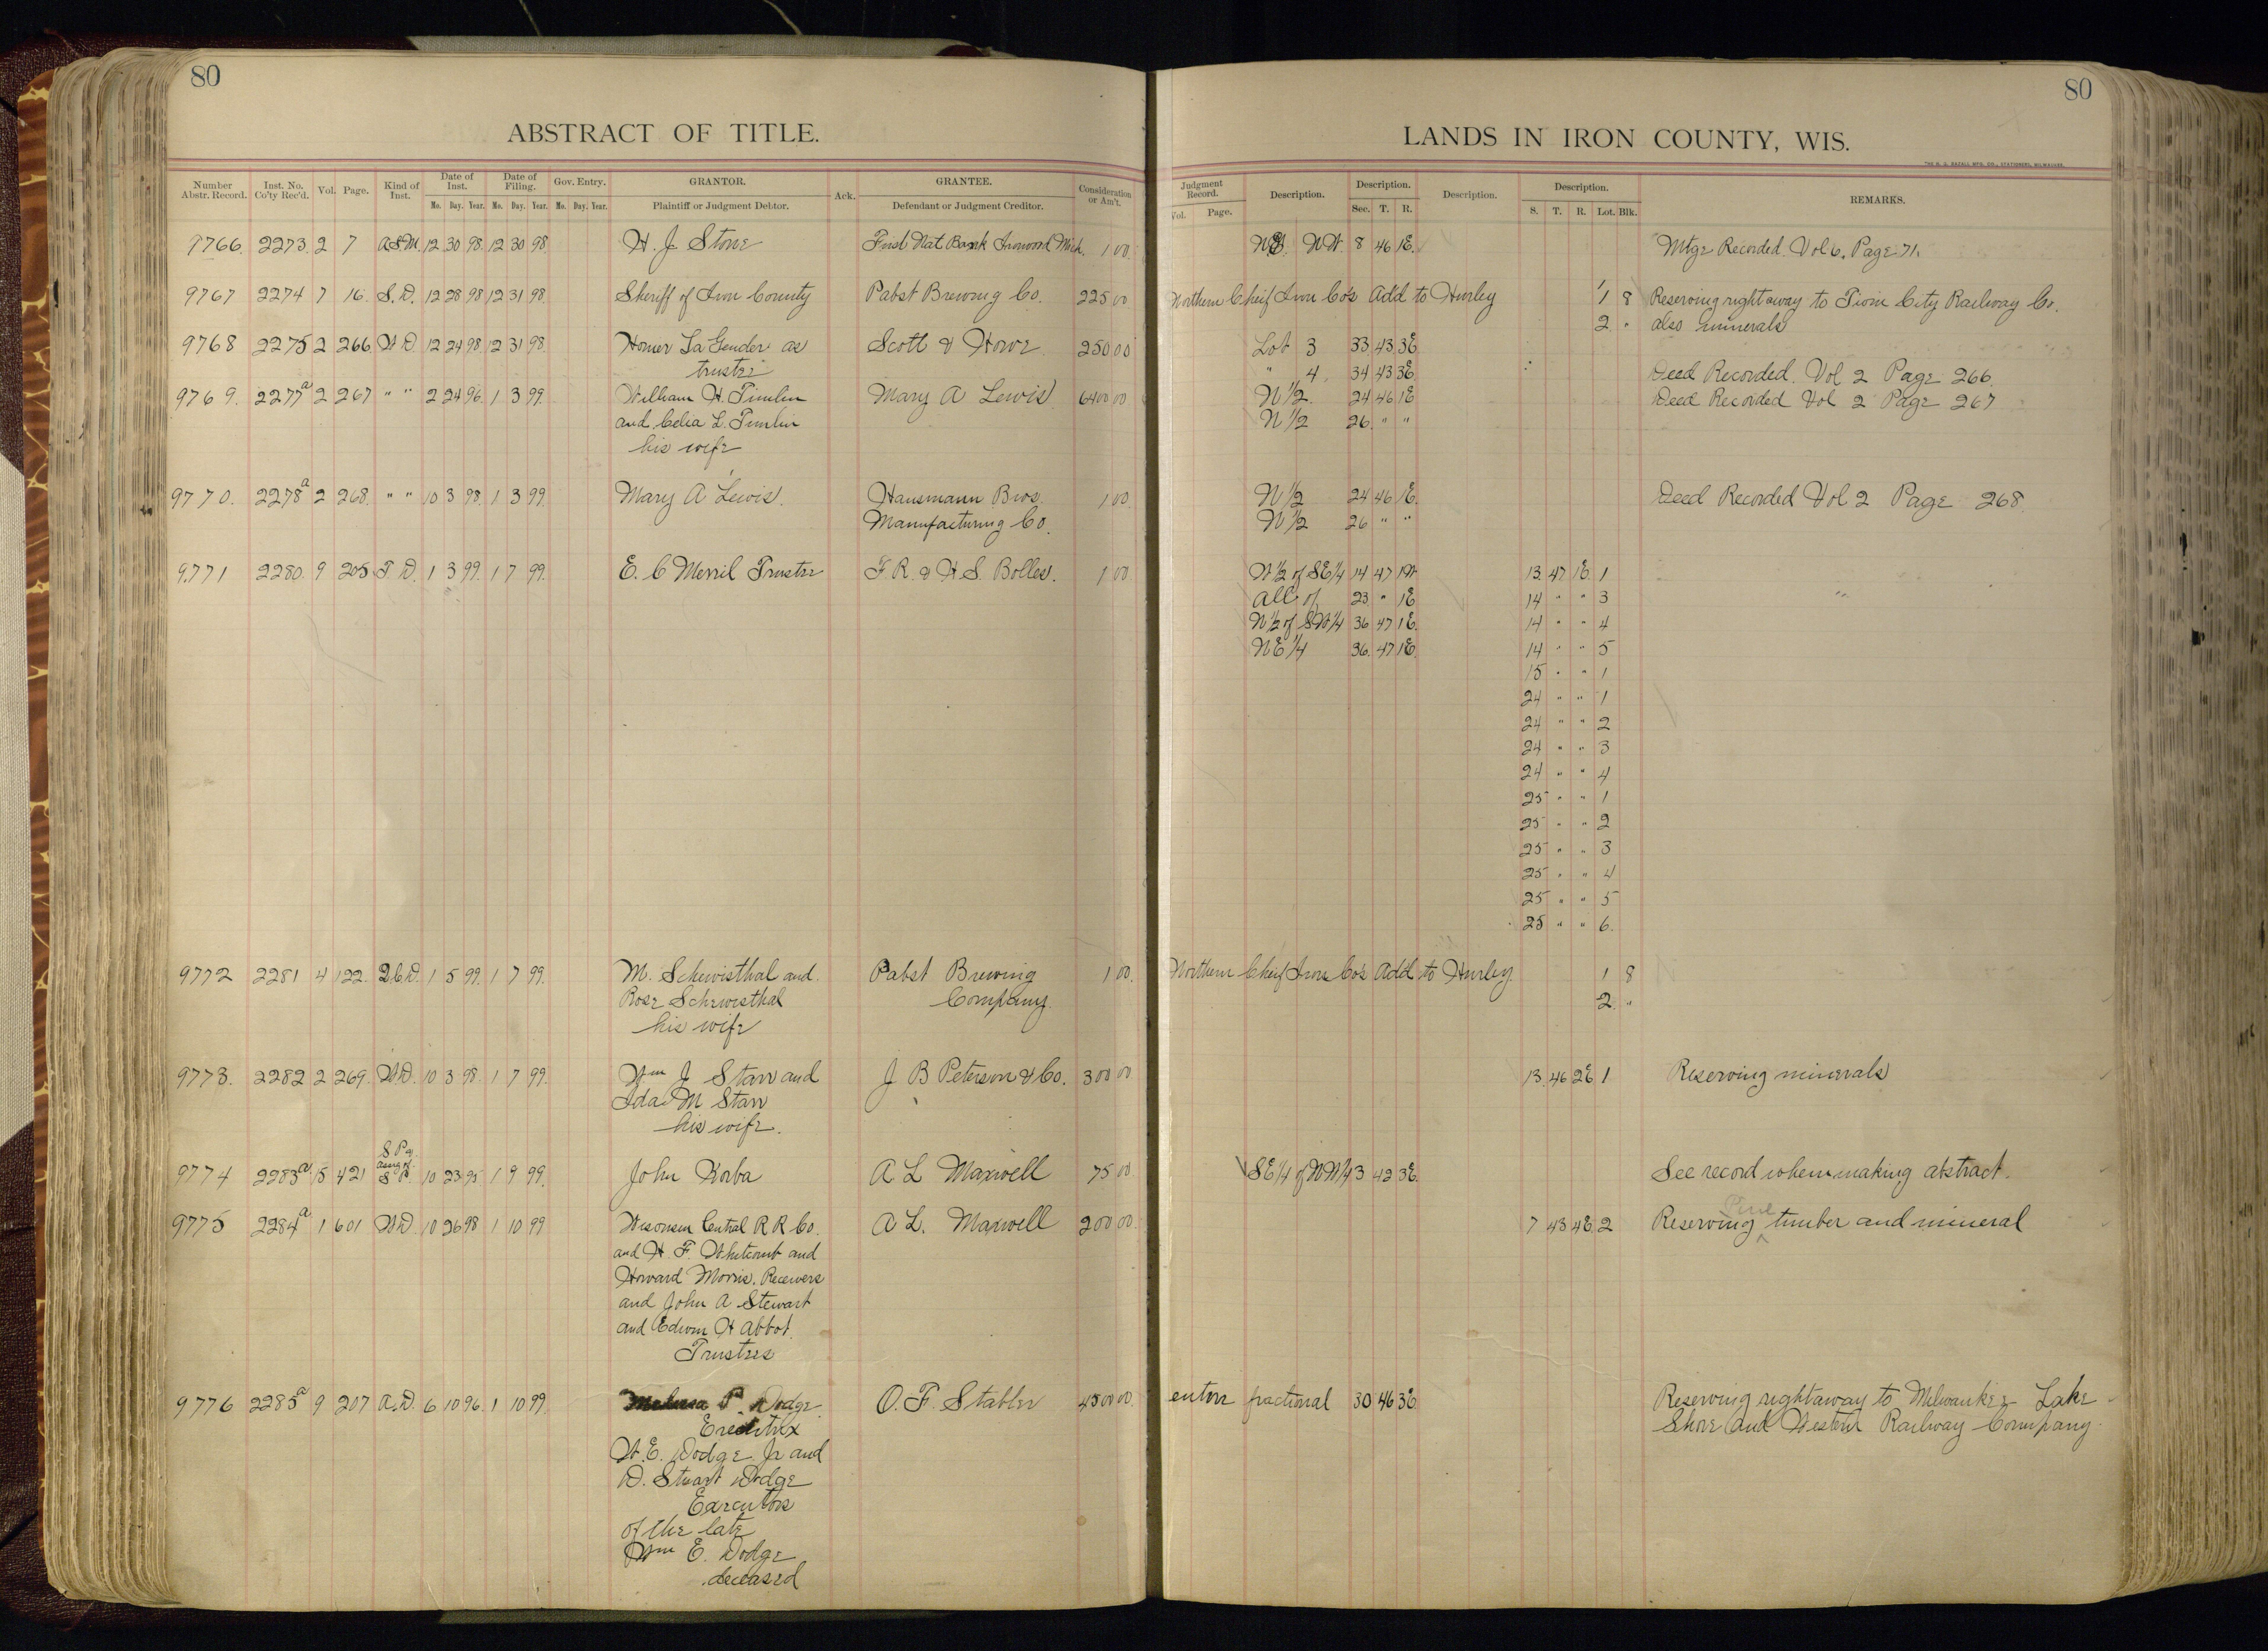 80
ABSTRACT OF TITLE.
Number Abstr. Record. Inst. No. Co'ty Rec'd. Vol. Page. Kind of Inst. Date of Inst. Mo. Day. Year. Date of Filing. Mo. Day. Year. Gov. Entry. Mo. Day. Year. GRANTOR. Plaintiff or Judgment Debtor. Ack. GRANTEE. Defendant or Judgment Creditor. Consideration or Am't.
9766. 2273. 2 7 A.S.M. 12 30 98. 12 30 98. H. J. Stone First Nat Bank Ironwood Mich. 1 00
9767 2274 7 16. S. D. 12 28 98 12 31 98. Sheriff of Iron County Pabst Brewing Co. 225 00
9768 2275 2 266 W D. 12 24 98. 12 31 98. Homer La Gender as Scott & Howe 250 00
trustee
9769. 2277a 2 267 " " 2 24 96. 1 3 99. William H. Timlin Mary A Lewis 6400 00
and Celia L. Timlin
his wife
9770. 2278a 2 268. " " 10 3 98. 1 3 99. Mary A Lewis. Hausmann Bros. 1 00
Manufacturing Co.
9771 2280. 9 205 T D. 1 3 99. 1 7 99. E. C Merril Trustee F. R. & H. S. Bolles. 1 00
9772 2281 4 122. Q.C.D. 1 5 99. 1 7 99. M. Schwisthal and Pabst Brewing 1 00
Rose Schwisthal Company.
his wife
9773. 2282 2 269. W.D. 10 3 98. 1 7 99. Wm J Starr and J B Peterson & Co. 300 00
Ida M Starr
his wife.
S Pa.
assg of
9774 2283a 15 421 S P. 10 23 95 1 9 99. John Korba A L Maxwell 75 00
9775 2284a 1 601 W.D. 10 26 98 1 10 99 Wisconsin Central R R Co. A L. Maxwell 200 00
and H. F. Whitcomb and
Howard Morris. Receivers
and John A Stewart
and Edwin H Abbot.
Trustees
9776 2285a 9 207 A.D. 6 10 96. 1 10 99 Melissa P. Dodge O. F. Stabler 4500 00
Executrix
W. E. Dodge Jr and
D. Stuart Dodge
Executors
of the late
Wm E. Dodge
deceased
80
LANDS IN IRON COUNTY, WIS.
THE H. G. RAZALL MFG. CO., STATIONERS, MILWAUKEE.
Judgment Record. Vol. Page. Description. Description. Sec. T. R. Description. Description. S. T. R. Lot. Blk. REMARKS.
NW. 8 46 1E. Mtge Recorded Vol 6. Page 71.
Northern Cheif Iron Co's Add to Hurley 1 8 Reserving right away to Twin City Railway Co.
2 " also minerals
Lot 3 33 43 3E
" 4 34 43 3E Deed Recorded. Vol 2 Page 266.
N 1/2. 24 46 1E Deed Recorded Vol 2 Page 267
N 1/2 26. " "
N 1/2 24 46 1E. Deed Recorded Vol 2 Page 268.
N 1/2 26 " "
W 1/2 of SE 1/4 14 47 1W 13. 47 1E. 1
All of 23 " 1E 14 " " 3
N 1/2 of SW 1/4 36 47 1E. 14 " " 4
NE 1/4 36. 47 1E. 14 " " 5
15 " " 1
24 " " 1
24 " " 2
24 " " 3
24 " " 4
25 " " 1
25 " " 2
25 " " 3
25 " " 4
25 " " 5
25 " " 6.
Northern Cheif Iron Co's Add to Hurley. 1 8
2. "
13. 46 2E 1 Reserving minerals
SE 1/4 of NW 1/4 3 42 3E. See record when making abstract.
Pine
7 43 4E. 2 Reserving timber and mineral
entire fractional 30 46 3E. Reserving right away to Milwaukee Lake
Shore and Western Railway Company.